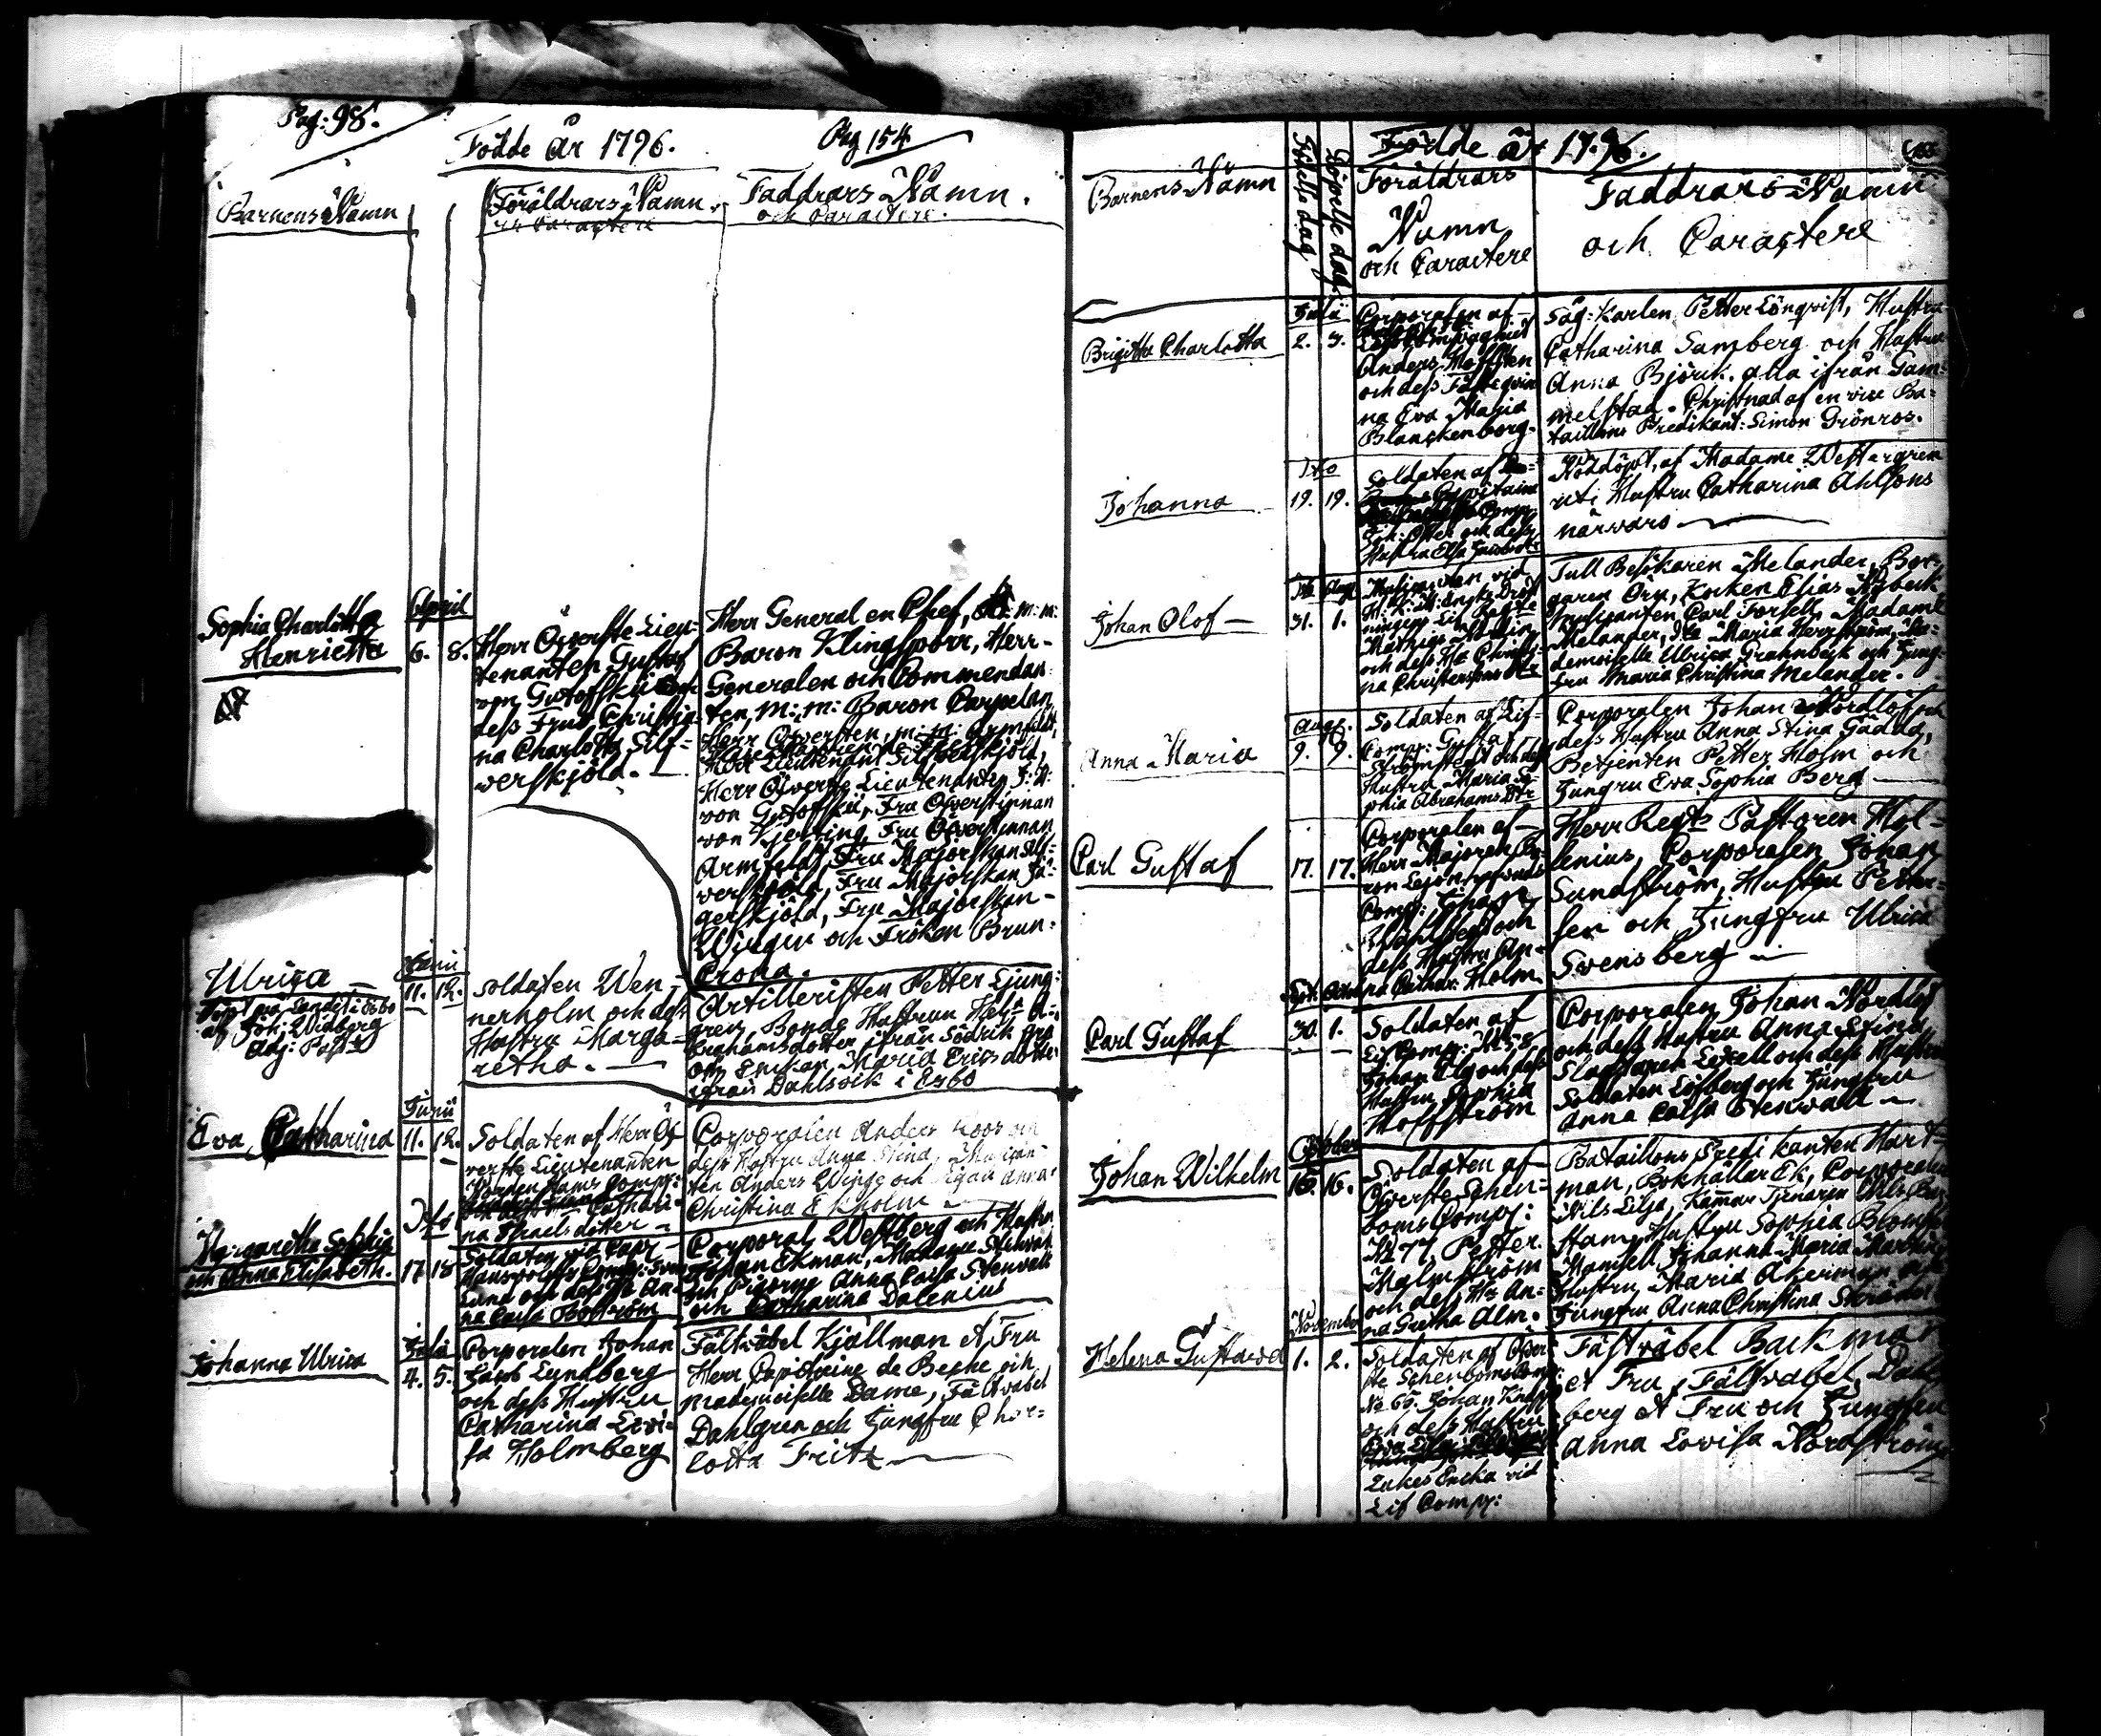 Pag: 98.
Födde år 1796.
Pag 154
Barnens Namn
Föräldrars Namn
och Caractere
Faddrars Namn.
och Caractere.
Sophia Charlotta
Henrietta
April
6. 8.
Herr Öfverste Lieu-
tenanten Gustaf
von Gutoffskii och
dess Fru Christi-
na Charlotta Silf-
verskjöld.
Herr General en Chef, m: m:
Baron Klingsporr, Herr
Generalen och Commendan-
ten, m: m: Baron Carpelan
Herr Öfversten, m: m: Armfeldt,
Herr Lieutenant Silfverskjöld,
Herr Öfverste Lieutenanten
von Gutoffskii, Fru Öfverstinnan
von Kjerting, Fru Öfverstinnan
Armfeldt, Fru Majorskan Silf-
verskjöld, Fru Majorskan Jä-
gerskjöld, Fru Majorskan
och Fröken Brun-
crona.
Ulrica
Döpt på Landet i Esbo
af Joh: Widberg
Adj: Past:
Junii
11. 12.
Soldaten Wen-
nerholm och dess
Hustru Marga-
retha.
Artilleristen Petter Ljung-
gren, Bonde Hustrun A-
brahamsdotter ifrån Södrik
och Enkan Maria Ericsdotter
ifrån Dahlsvik i Esbo
Eva Catharina
Junii
11. 12.
Soldaten af Herr Öf-
verste Lieutenanten
Comp:
Cathari-
na Israelsdotter
Corporalen Anders Roos och
dess Hustru Anna Stina, Musican-
ten Anders Winge och Pigan Anna
Christina Ekholm
Margaretha Sophia
och Anna Elisabeth.
Dto
17 18
Soldaten vid Capt
Comp: Sven
Lund och dess Hu An-
na Caisa Boström
Corporal Westberg och Hustru
Johan Ekman, Madame
och Pigorne Anna Caisa Stenvall
och Catharina Dalenius
Johanna Ulrica
Julii
4. 5.
Corporalen Johan
Jacob Lundberg
och dess Hustru
Catharina Lovi-
sa Holmberg
Fältväbel Kjällman et Fru
Herr Capitaine de Beche och
Mademoiselle Dame, Fältväbel
Dahlgren och Jungfru Char-
lotta Fritz
Födde år 1796.
Barnens Namn
Födelse dag
Döpelse dag
Föräldrars
Namn
och Caractere
Faddrars Namn
och Caractere
Brigitta Charlotta
Julii
2. 3.
Corporalen af
Lif Compagniet
Anders Hoffsten
och dess Fästeqvin
na Eva Maria
Blanckenborg.
Såg: Karlen Petter Lönqvist, Hustru
Catharina Samberg och Hustru
Anna Björik. alla ifrån Gam-
melstad. Christnad af en vice Ba-
taillons Predikant: Simon Grönros.
Johanna
Dto
19. 19.
Soldaten af
Capitaine
Comp:
och dess
Hustru
Nöddöpt, af Madame Westergren
uti Hustru Catharina Ahlsons
närvaro
Johan Olof
Dto Aug
31. 1.
Musicanten vid
Mathias Malin
och dess Hu Christi-
na Christersdotter
Tull Besökaren Melander, Bor-
garen Örn, Kocken Elias Nybeck
Musicanten Carl Forsell, Madame
Melander, Dto Maria Herrström, Ma-
demoiselle Ulrica Grahnbeck och Jung-
fru Maria Christina Melander.
Anna Maria
Aug:
9. 9.
Soldaten af Lif
Comp: Gustaf
Strömstedt och dess
Hustru Maria So-
phia Abrahams Dtr
Corporalen Johan Nordlöf och
dess Hustru Anna Stina Gädda,
Betjenten Petter Holm och
Jungru Eva Sophia Berg
Carl Gustaf
17. 17.
Corporalen af
Herr Majoren Ba-
ron Lejonhufvuds
Comp: Johan
Wahlberg och
dess Hustru An-
na Cathar. Holm
Herr Regts Pastoren Myl-
lenius, Corporalen Johan
Sundström, Hustru Petter-
sen och Jungfru Ulrica
Svensberg
Carl Gustaf
Sept: Octo
30. 1.
Soldaten af
Lif Comp: No 58
Johan Elg och dess
Hustru Sophia
Hoffström
Corporalen Johan Nordlöf
och dess Hustru Anna Stina,
Slagtaren Lexell och dess Hustru
Soldaten Löfberg och Jungfru
Anna Caisa Stenwall
Johan Wilhelm
October
16. 16.
Soldaten af
Öfverste Schen-
boms Comp:
No 77, Petter
Malmström
och dess Hu An-
na Greta Alm.
Bataillons Predikanten Hart-
man, Bokhållar Ek, Corporalen
Nils Lilja, Kammar Tjenaren Nils
Hustru Sophia
Mamsell Johanna Maria
Hustru Maria Åkerman och
Jungfru Anna Christina
Helena Gustava
November
1. 2.
Soldaten af Öfver
ste Schenboms Comp:
No 65. Johan
och dess Hustru
Eva
Enka vid
Lif Comp:
Fältväbel Backman
et Fru, Fältväbel Dahl-
berg et Fru och Jungfru
Anna Lovisa Nordström